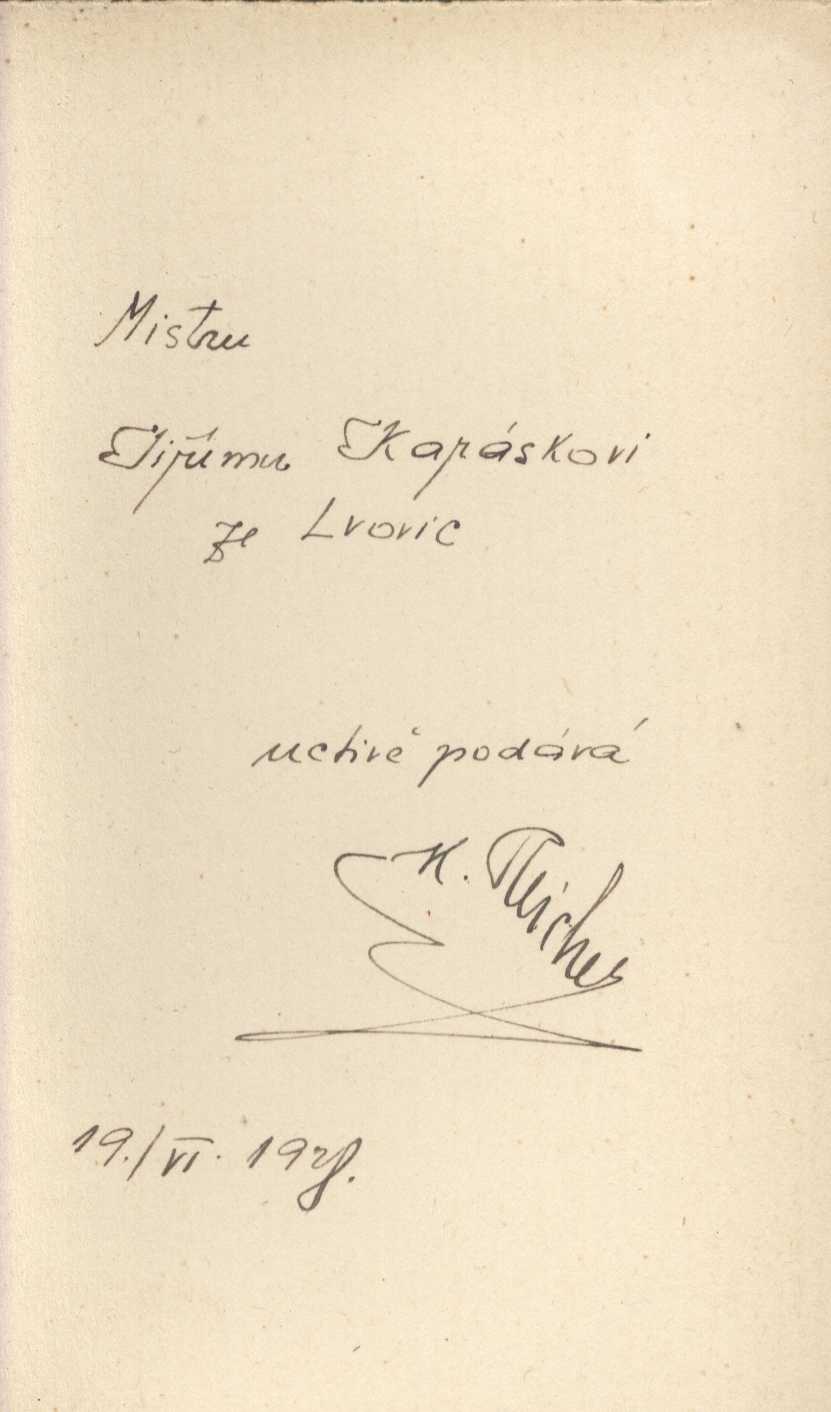 Mistru
Jiřímu Karáskovi
ze Lvovic
uctivě podává
K. Reiches
19./VI. 1928.